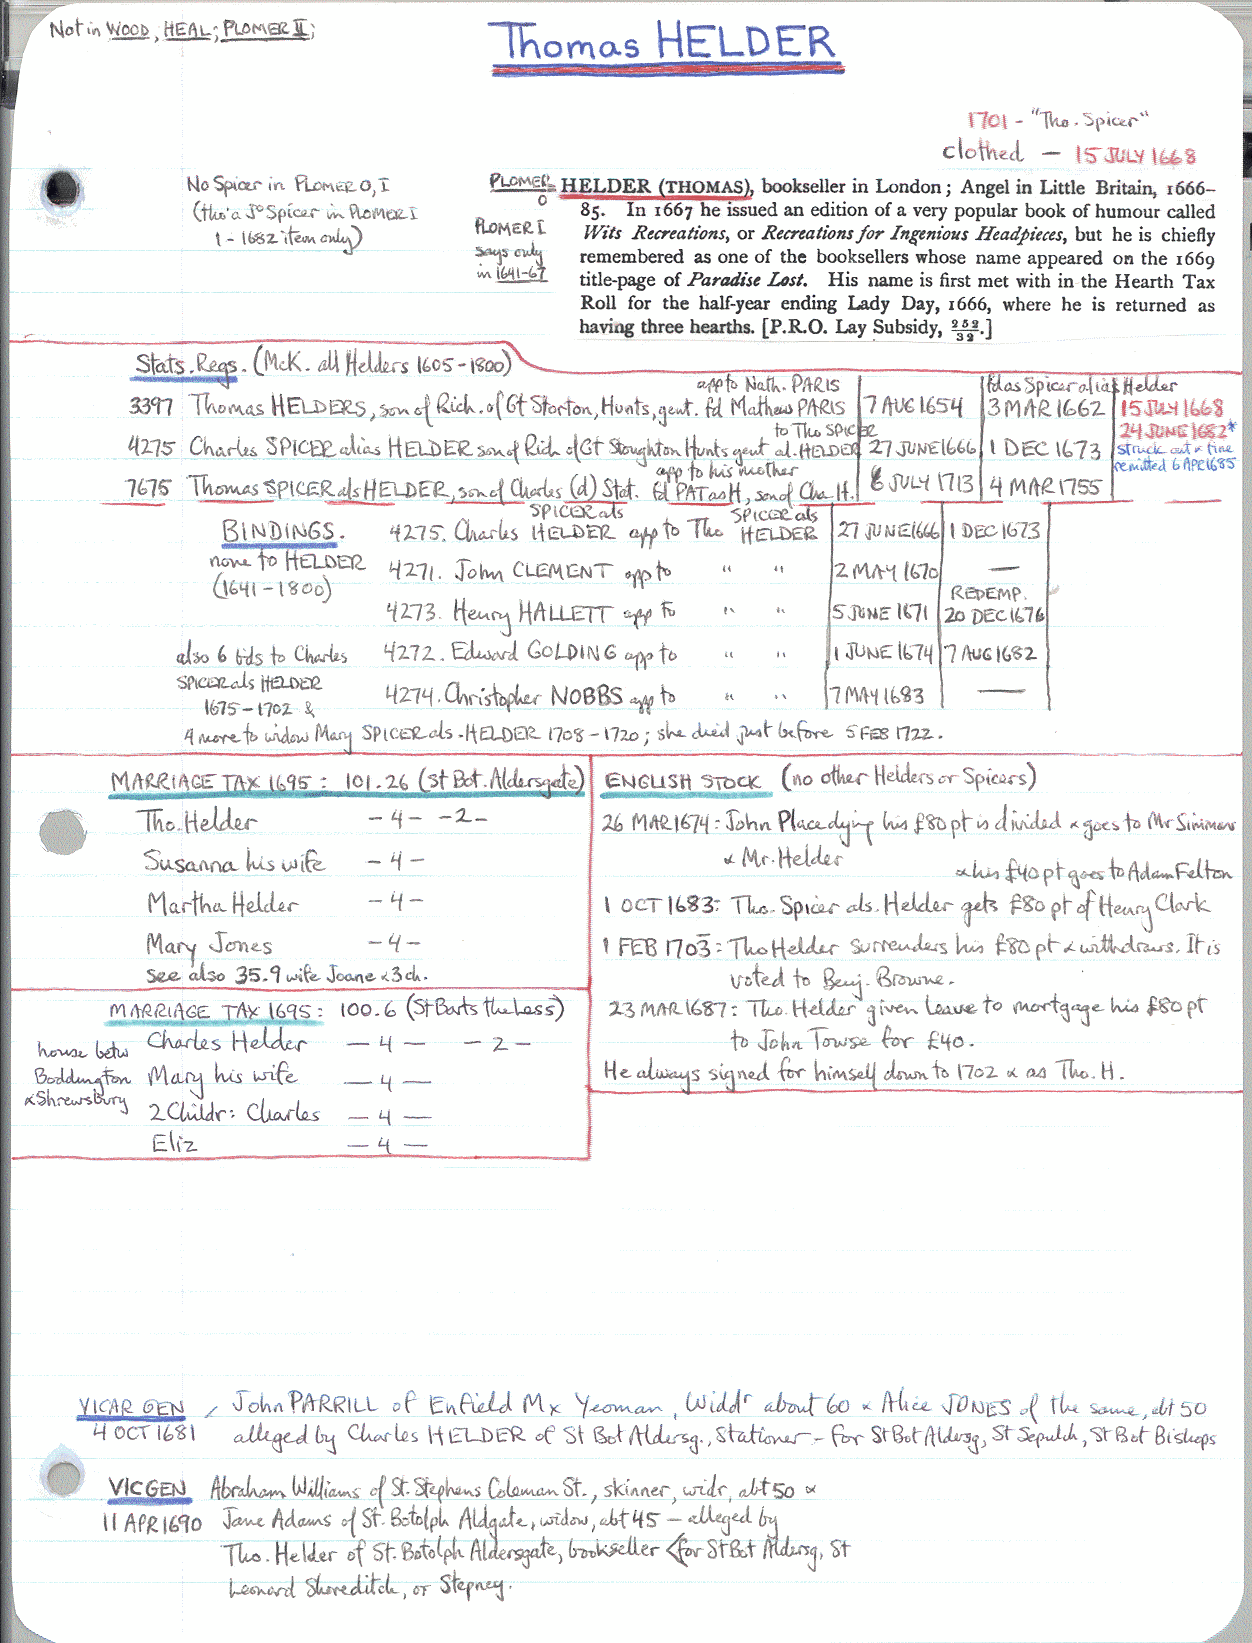 Not in WOOD, HEAL; PLOMER II;
Thomas HELDER
1701 - "Tho. Spicer"
clothed — 15 JULY 1668
No Spicer in PLOMER O, I
(tho' a Jo Spicer in PLOMER I
1 - 1682 item only)
PLOMER O
PLOMER I
says only
in 1641-67
HELDER (THOMAS), bookseller in London; Angel in Little Britain, 1666–
85. In 1667 he issued an edition of a very popular book of humour called
Wits Recreations, or Recreations for Ingenious Headpieces, but he is chiefly
remembered as one of the booksellers whose name appeared on the 1669
title-page of Paradise Lost. His name is first met with in the Hearth Tax
Roll for the half-year ending Lady Day, 1666, where he is returned as
having three hearths. [P.R.O. Lay Subsidy, 252/32.]
Stats. Regs. (McK. all Helders 1605-1800)
app to Nath. PARIS
fd as Spicer alias Helder
3397 Thomas HELDERS, son of Rich. of Gt Storton, Hunts, gent. fd Mathew PARIS 7 AUG 1654 3 MAR 1662 15 JULY 1668
to Tho SPICER
24 JUNE 1682*
4275 Charles SPICER alias HELDER son of Rich of Gt Stoughton Hunts gent al. HELDER 27 JUNE 1666 1 DEC 1673 struck out & fine
app to his mother
remitted 6 APR 1685
7675 Thomas SPICER als HELDER, son of Charles (d) Stat. fd PAT as H, son of Cha H. 6 JULY 1713 4 MAR 1755
BINDINGS.
none to HELDER
(1641-1800)
SPICER als SPICER als
4275. Charles HELDER app to Tho HELDER 27 JUNE 1666 1 DEC 1673
4271. John CLEMENT app to " " 2 MAY 1670 —
REDEMP.
4273. Henry HALLETT app to " " 5 JUNE 1671 20 DEC 1676
4272. Edward GOLDING app to " " 1 JUNE 1674 7 AUG 1682
4274. Christopher NOBBS app to " " 7 MAY 1683 —
also 6 bds to Charles
SPICER als HELDER
1675-1702 &
4 more to widow Mary SPICER als. HELDER 1708-1720; she died just before 5 FEB 1722.
MARRIAGE TAX 1695: 101.26 (St Bot. Aldersgate)
Tho. Helder -4- -2-
Susanna his wife -4-
Martha Helder -4-
Mary Jones -4-
see also 35.9 wife Joane & 3 ch.
MARRIAGE TAX 1695: 100.6 (St Barts the Less)
house betw
Boddington
& Shrewsbury
Charles Helder — 4 — — 2 —
Mary his wife — 4 —
2 Childr: Charles — 4 —
Eliz — 4 —
ENGLISH STOCK (no other Helders or Spicers)
26 MAR 1674: John Place dying his £80 pt is divided & goes to Mr Simmons
& Mr. Helder & his £40 pt goes to Adam Felton
1 OCT 1683: Tho. Spicer als. Helder gets £80 pt of Henry Clark
1 FEB 1703: Tho Helder surrenders his £80 pt & withdraws. It is
voted to Benj. Browne.
23 MAR 1687: Tho. Helder given leave to mortgage his £80 pt
to John Towse for £40.
He always signed for himself down to 1702 & as Tho. H.
VICAR GEN
4 OCT 1681
John PARRILL of Enfield Mx Yeoman, Widdr about 60 & Alice JONES of the same, abt 50
alleged by Charles HELDER of St Bot Aldersg., Stationer - for St Bot Aldersg, St Sepulch, St Bot Bishops
VIC GEN
11 APR 1690
Abraham Williams of St. Stephens Coleman St., skinner, widr, abt 50 &
Jane Adams of St. Botolph Aldgate, widow, abt 45 — alleged by
Tho. Helder of St. Botolph Aldersgate, bookseller (for St Bot Aldersg, St
Leonard Shoreditch, or Stepney.